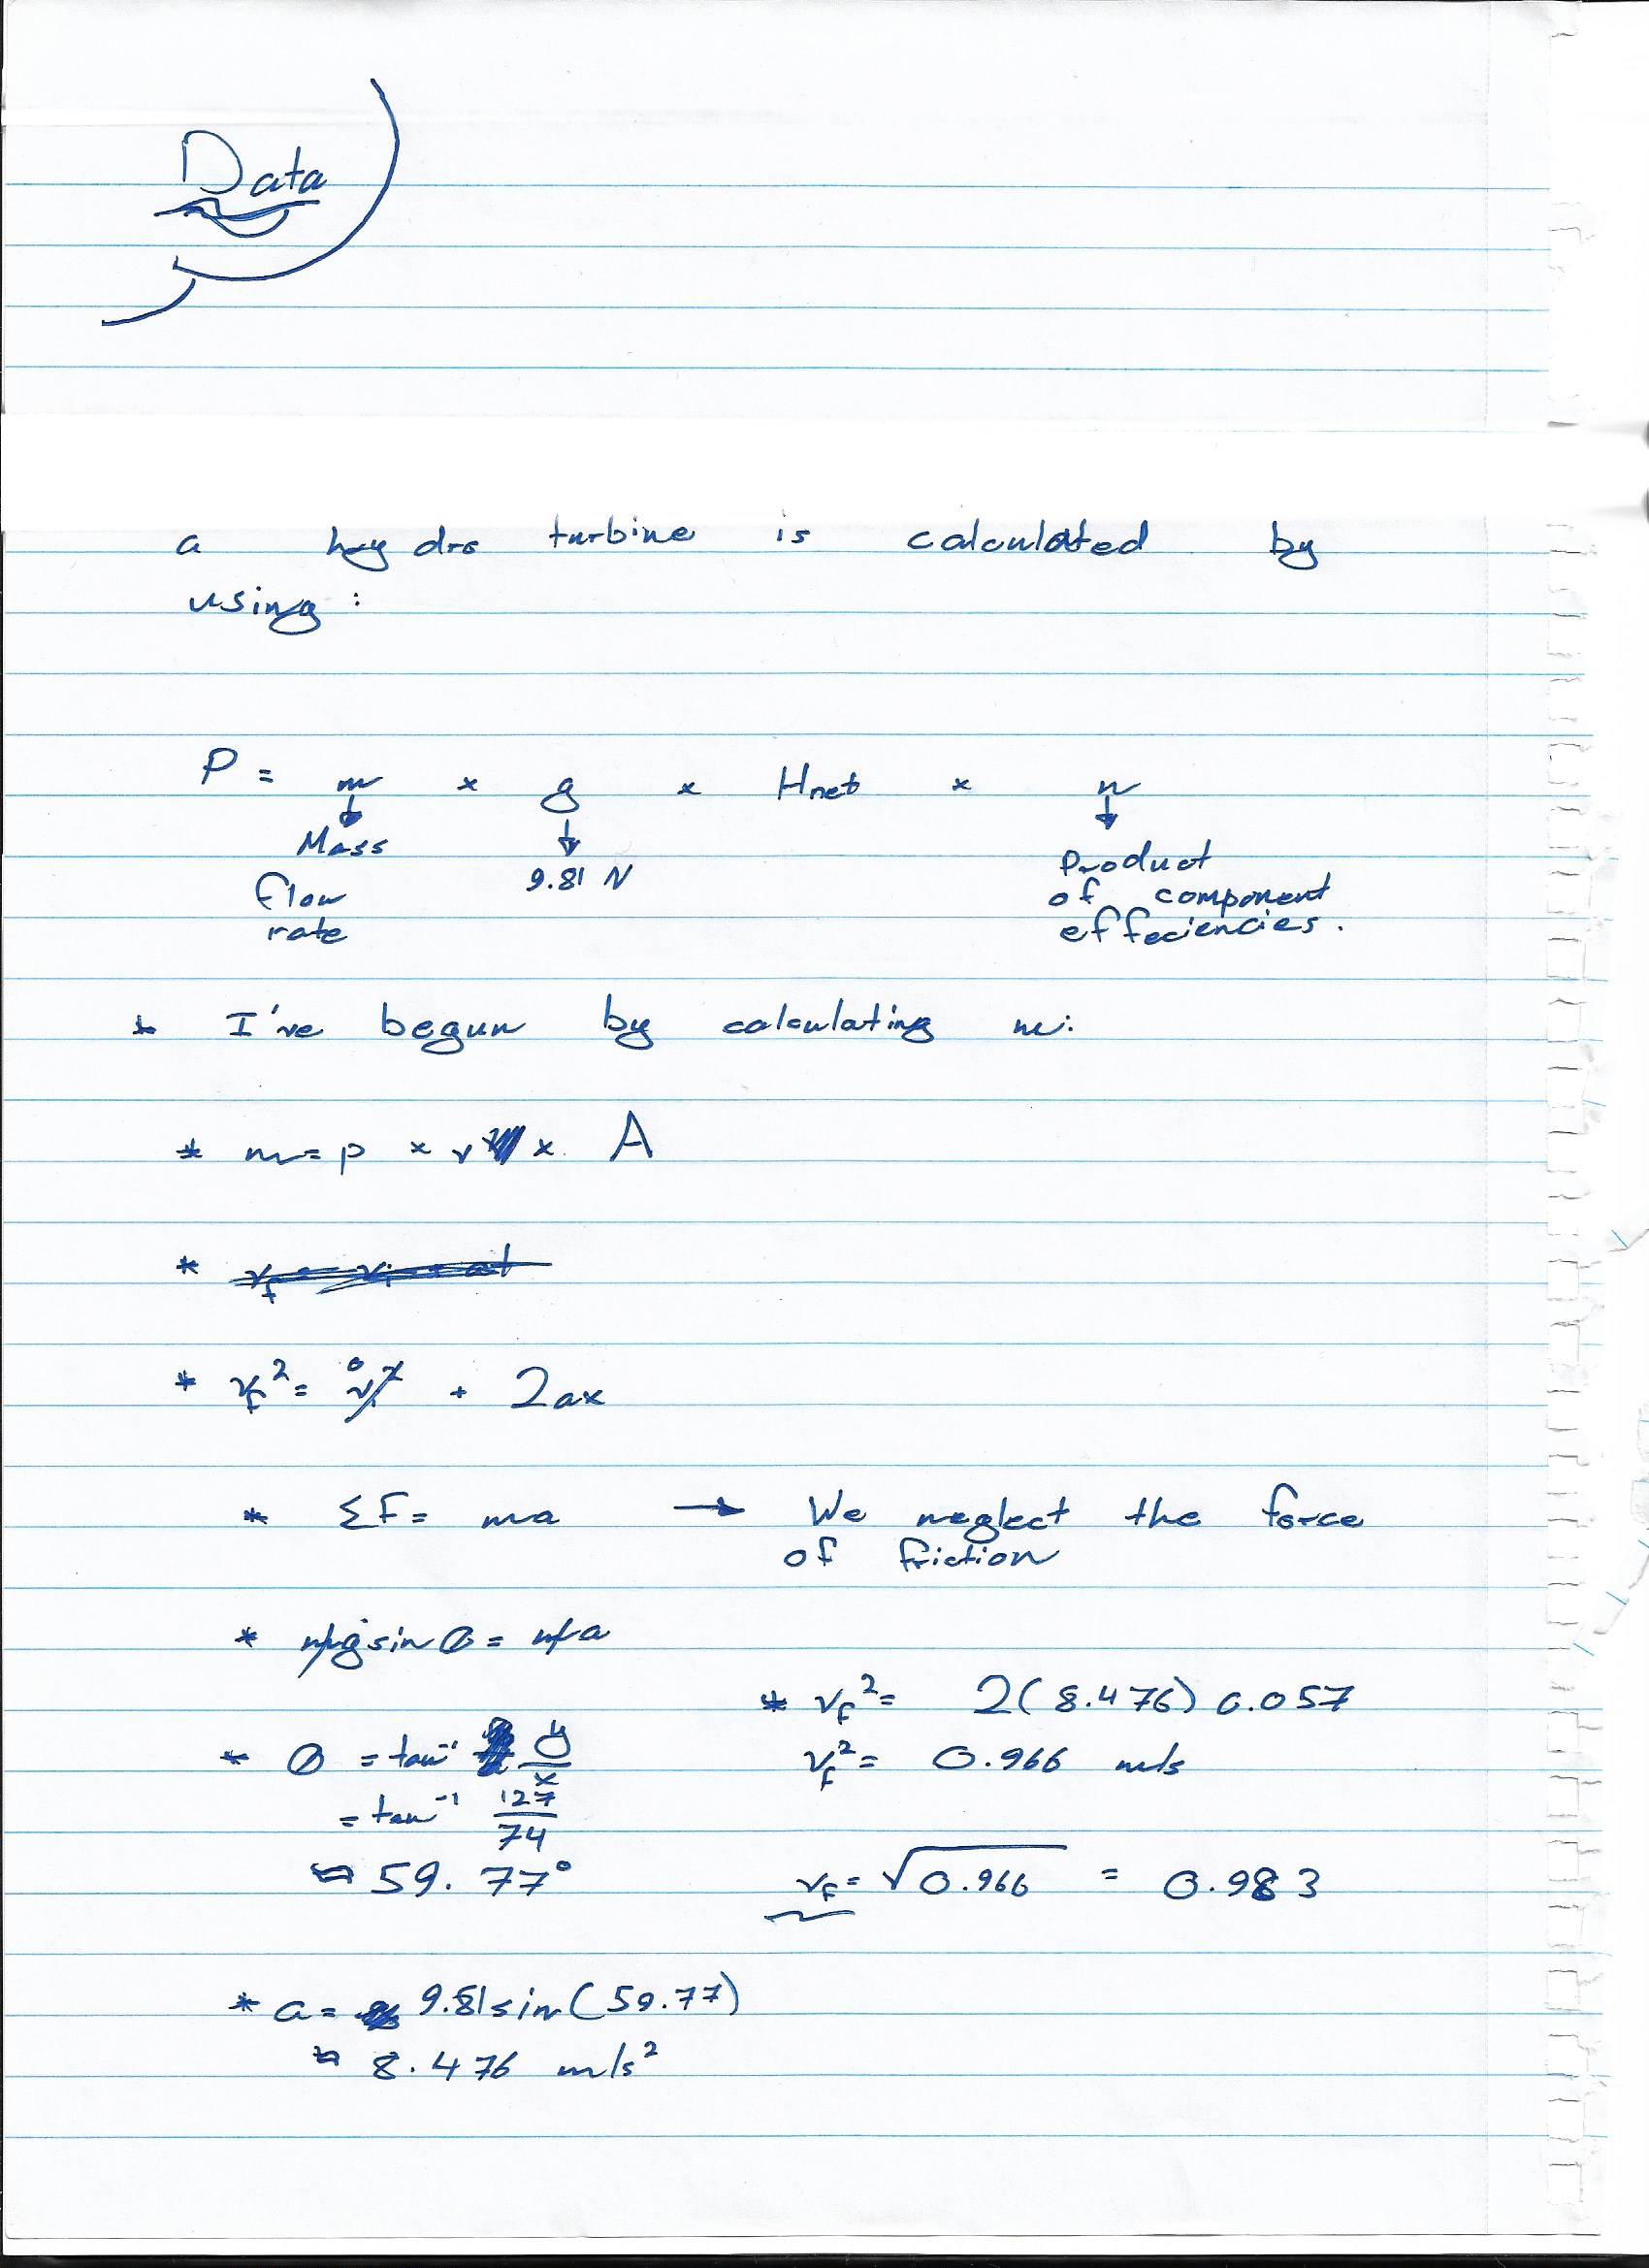 Data
a hydro turbine is calculated by
using:
P = m x g x Hnet x n
Mass flow rate
9.81 N
Product of component effeciencies.
* I've begun by calculating m:
* m = p x v x A
* vf = vi + at
* vf² = vi² 0 + 2ax
* ΣF = ma → We neglect the force
of friction
* mg sin θ = ma
* θ = tan⁻¹ y/x
= tan⁻¹ 127/74
≈ 59.77°
* a = 9.81 sin(59.77)
≈ 8.476 m/s²
* vf² = 2(8.476) 0.057
vf² = 0.966 m/s
vf = √0.966 = 0.983